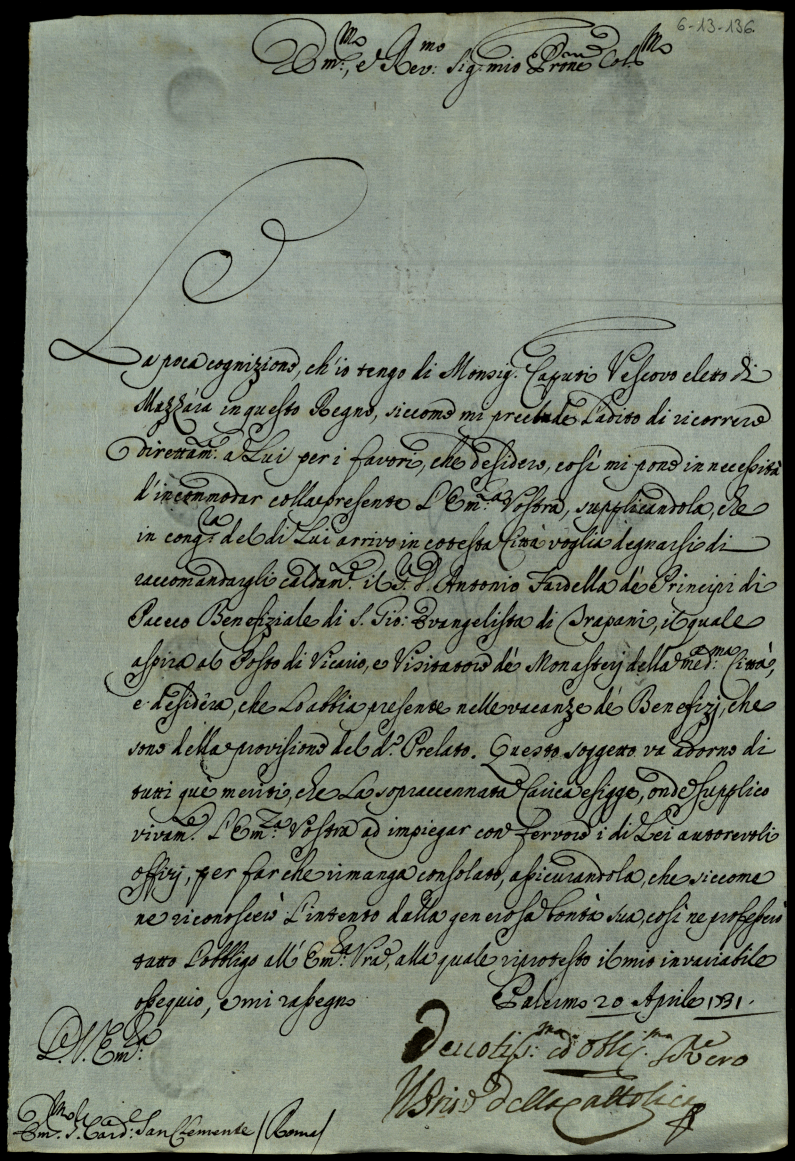 6-13-136
Em.mo, e Rev.mo Sig. mio Prone Col.mo
La poca cognizione, ch'io tengo di Monsig.r Caputi Vescovo eletto di
Mazzara in questo Regno, siccome mi preclude l'adito di ricorrere
direttam.e a Lui per i favori, che desidero, così mi pone in necessità
d'incommodar colla presente L'Em.za Vostra, supplicandola, che
in cong.ra del di Lui arrivo in cotesta Città voglia degnarsi di
raccomandargli caldam.e il S.r D. Antonio Fardella de' Principi di
Paceco Benefiziale di S. Gio: Evangelista di Trapani, il quale
aspira al Posto di Vicario, e Visitatore de' Monasterj della med.ma Città,
e desidera, che Lo abbia presente nelle vacanze de' Benefizj, che
sono della provisione del d.o Prelato. Questo soggetto va adorno di
tutti que' meriti, che La sopraccennata Carica esigge, onde supplico
vivam.e L'Em.za Vostra ad impiegar con fervore i di Lei autorevoli
offizj, per far che rimanga consolato, assicurandola, che siccome
ne riconoscerò l'intento dalla generosa bontà sua, così ne professerò
tutto l'obbligo all'Em.za Vra, alla quale riprotesto il mio invariabile
ossequio, e mi rassegno Palermo 20 Aprile 1731.
D. V. Em.za
Devotiss.mo ed Obblig.mo Se.re Vero
della Cattolica
Em.mo S. Card.e San Clemente /Roma/